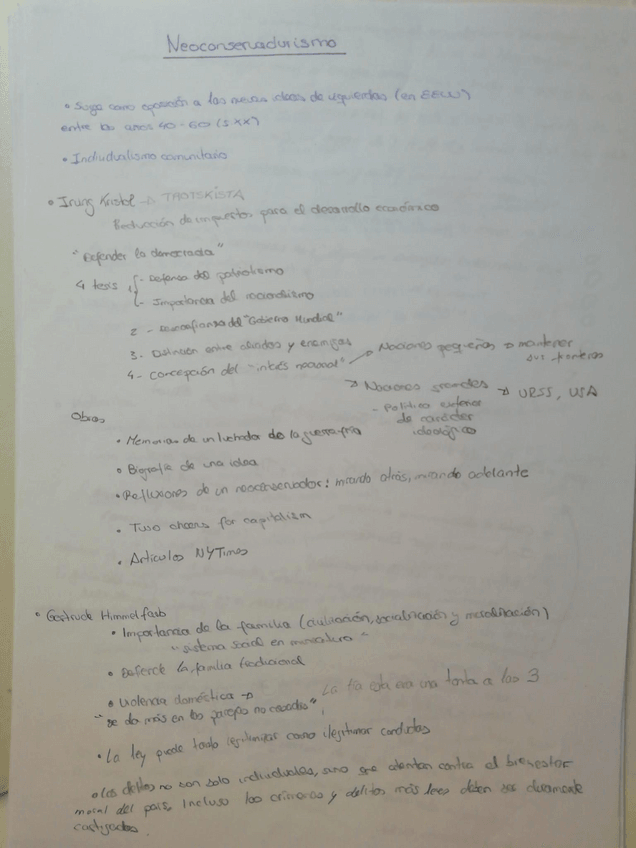 Neoconservadurismo
• Surge como oposición a las nuevas ideas de izquierdas (en EEUU)
entre los años 40-60 (S XX)
• Individualismo comunitario
• Irving Kristol → TROTSKISTA
Reducción de impuestos para el desarrollo económico
"Defender la democracia"
4 tesis
1
- Defensa del patriotismo
- Importancia del nacionalismo
2 - Desconfianza del "Gobierno Mundial"
3 - Distinción entre aliados y enemigos
4 - Concepción del "interés nacional"
→ Naciones pequeñas → mantener
sus fronteras
→ Naciones grandes → URSS, USA
- Política exterior
de carácter
ideológico
Obras
• Memorias de un luchador de la guerra fría
• Biografía de una idea
• Reflexiones de un neoconservador: mirando atrás, mirando adelante
• Two cheers for capitalism
• Artículos NYTimes
• Gertrude Himmelfarb
• Importancia de la familia (civilización, socialización y moralización)
"sistema social en miniatura"
• Defiende la familia tradicional
• Violencia doméstica → La tía esta era una tonta a las 3
"se da más en las parejas no casadas"
• La ley puede tanto legitimar como ilegitimar conductas
• Los delitos no son solo individuales, sino que atentan contra el bienestar
moral del país. Incluso los crímenes y delitos más leves deben ser duramente
castigados.